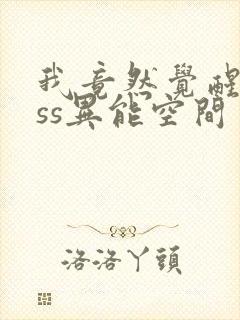 我竟然覺醒
ss異能空間
洛洛丫頭